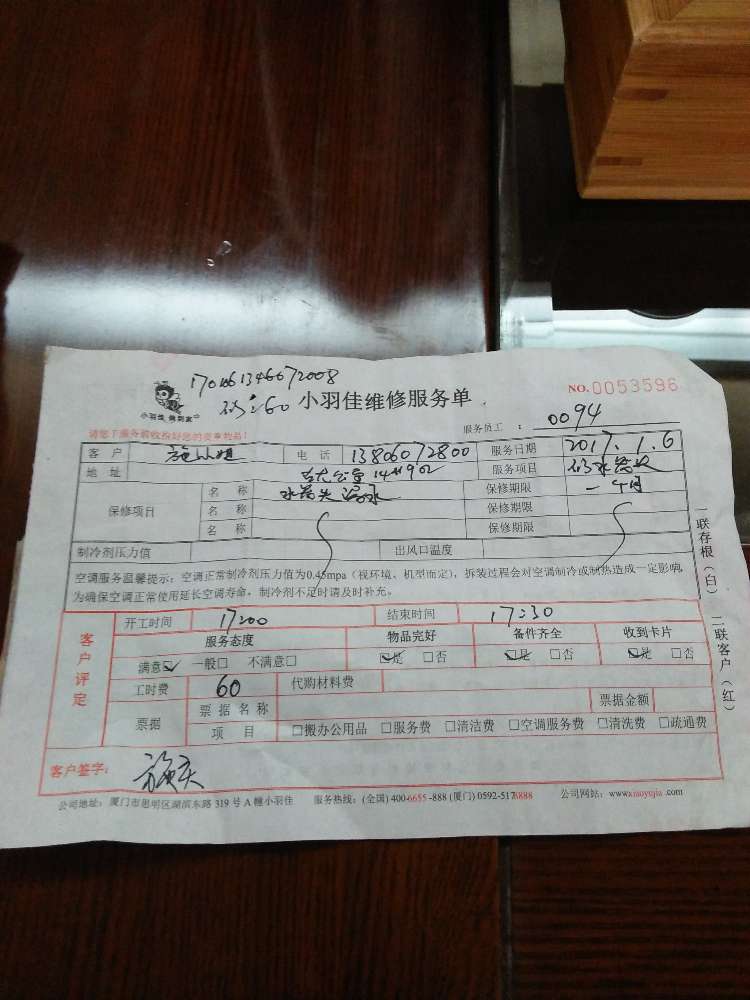 小羽佳 佣到家
小羽佳维修服务单
NO.0053596
请您于服务前收拾好您的贵重物品!
服务员工: 0094
客户 施小姐 电话 13806072800 服务日期 2017.1.6
地址 服务项目
保修项目 名称 保修期限 一个月
名称 保修期限
名称 保修期限
制冷剂压力值 出风口温度
空调服务温馨提示:空调正常制冷剂压力值为0.45mpa(视环境、机型而定),拆装过程会对空调制冷或制热造成一定影响,
为确保空调正常使用延长空调寿命,制冷剂不足时请及时补充。
一联存根(白) 二联客户(红)
客户评定
开工时间 17:00 结束时间 17:30
服务态度 物品完好 备件齐全 收到卡片
满意☑ 一般□ 不满意□ ☑是 □否 ☑是 □否 ☑是 □否
工时费 60 代购材料费
票据 票据名称 票据金额
项目 □搬办公用品 □服务费 □清洁费 □空调服务费 □清洗费 □疏通费
客户签字:
公司地址:厦门市思明区湖滨东路319号A幢小羽佳 服务热线:(全国)400-6655-888(厦门)0592-5178888 公司网站:www.xiaoyujia.com